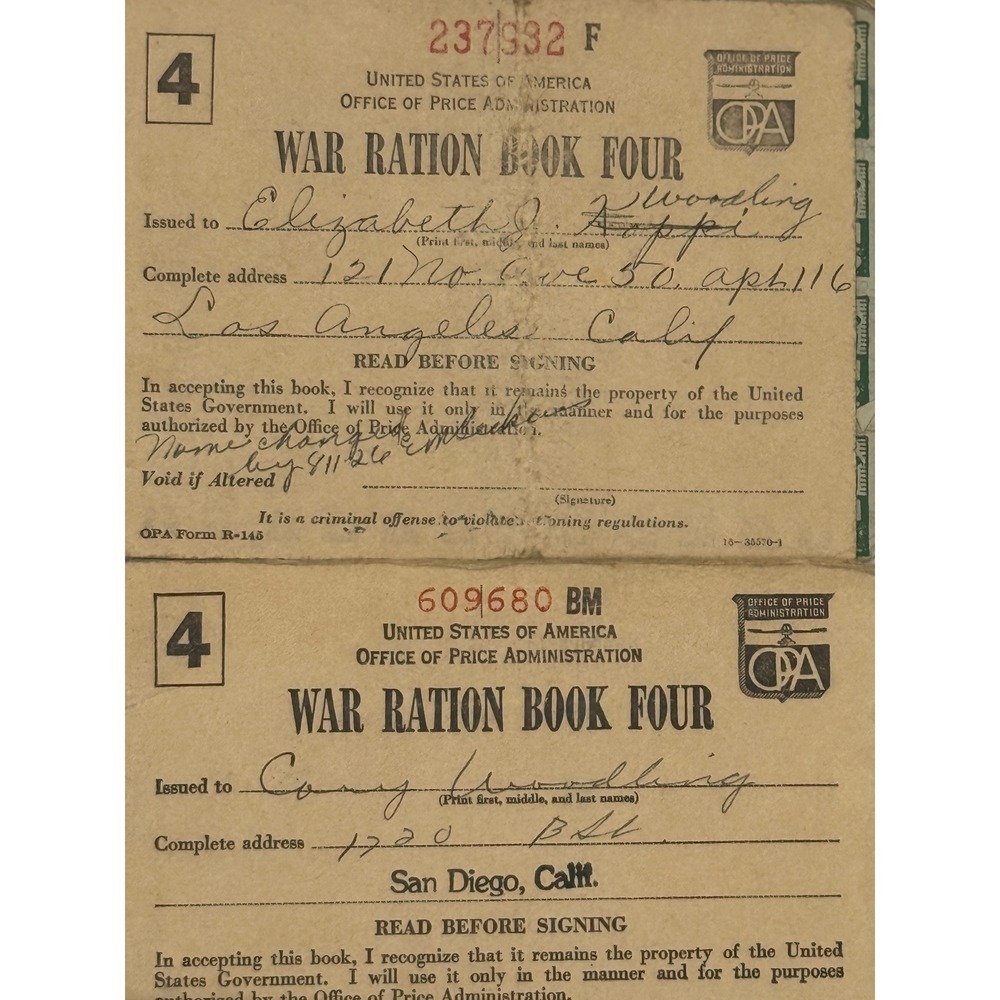 237992 F
4
OFFICE OF PRICE
ADMINISTRATION
OPA
UNITED STATES OF AMERICA
OFFICE OF PRICE ADMINISTRATION
WAR RATION BOOK FOUR
Woodling
Issued to Elizabeth J. Koppi
(Print first, middle, and last names)
Complete address 121 No. Ave 50. apt. 116
Los Angeles Calif
READ BEFORE SIGNING
In accepting this book, I recognize that it remains the property of the United
States Government. I will use it only in the manner and for the purposes
authorized by the Office of Price Administration.
Name changed
by 811-26
Void if Altered
(Signature)
It is a criminal offense to violate rationing regulations.
OPA Form R-145
16-35570-1
609680 BM
4
OFFICE OF PRICE
ADMINISTRATION
OPA
UNITED STATES OF AMERICA
OFFICE OF PRICE ADMINISTRATION
WAR RATION BOOK FOUR
Issued to Woodling
(Print first, middle, and last names)
Complete address 1720 B St.
San Diego, Calif.
READ BEFORE SIGNING
In accepting this book, I recognize that it remains the property of the United
States Government. I will use it only in the manner and for the purposes
authorized by the Office of Price Administration.